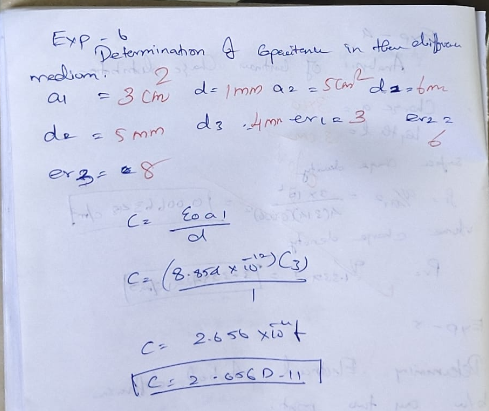 Exp - 6
Determination of Capacitance in the different
medium.
a1 = 3 cm 2 d = 1 mm a2 = 5 cm2 d2 = 6m
d2 = 5 mm d3 . 4m er1 = 3 er2 =
6
er3 = 8
C = ε0 a1 / d
C = (8.854 x 10^-12) (3) / 1
C = 2.656 x10^-11 f
C = 2.656D-11